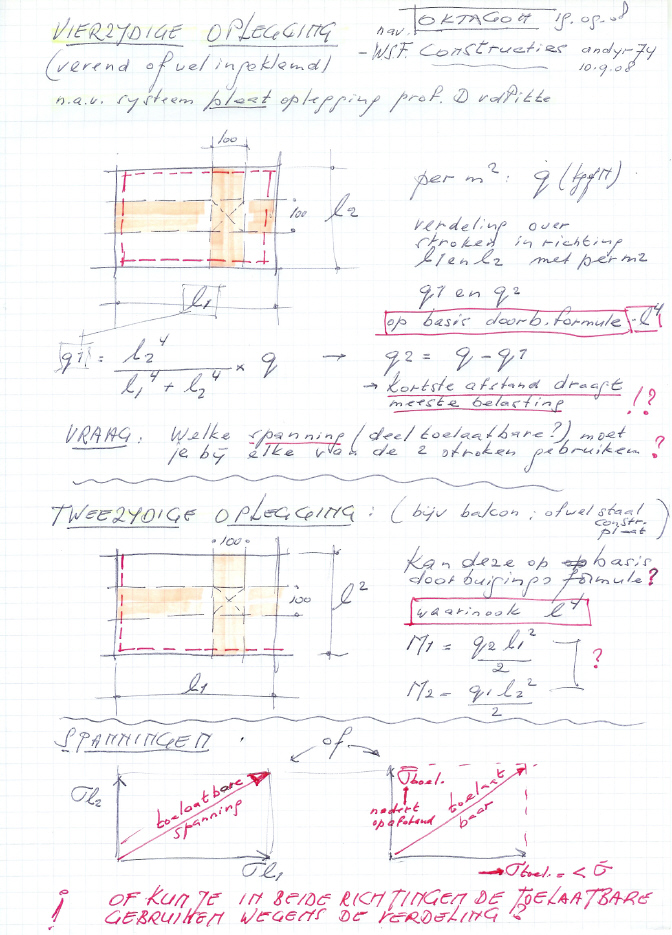 VIERZYDIGE OPLEGGING
nav. OKTAGON 19.09.08
(verend ofwel ingeklemd)
- WSF. Constructies andyr-74
10.9.08
n.a.v. systeem plaat oplegging prof. D vdPitte
100
100
l2
l1
per m²: q (kgf/m)
verdeling over
stroken in richting
l1 en l2 met per m2
q1 en q2
op basis doorb. formule - l⁴
q1 = l2⁴ / l1⁴ + l2⁴ × q → q2 = q - q1
→ kortste afstand draagt
meeste belasting !?
VRAAG: Welke spanning (deel toelaatbare?) moet
je bij elke van de 2 stroken gebruiken?
TWEEZYDIGE OPLEGGING: (bijv balcon; ofwel staal
constr.
plaat)
100
100
l²
l1
Kan deze op basis
doorbuigings formule?
waarin ook l⁴
M1 = q2 l1² / 2
?
M2 = q1 l2² / 2
SPANNINGEN:
of
σl2
toelaatbare
spanning
σl1
σ̄toel.
nadert
op afstand
toelaat
baar
→ σtoel. = < σ̄
! OF KUN JE IN BEIDE RICHTINGEN DE TOELAATBARE
GEBRUIKEN WEGENS DE VERDELING?